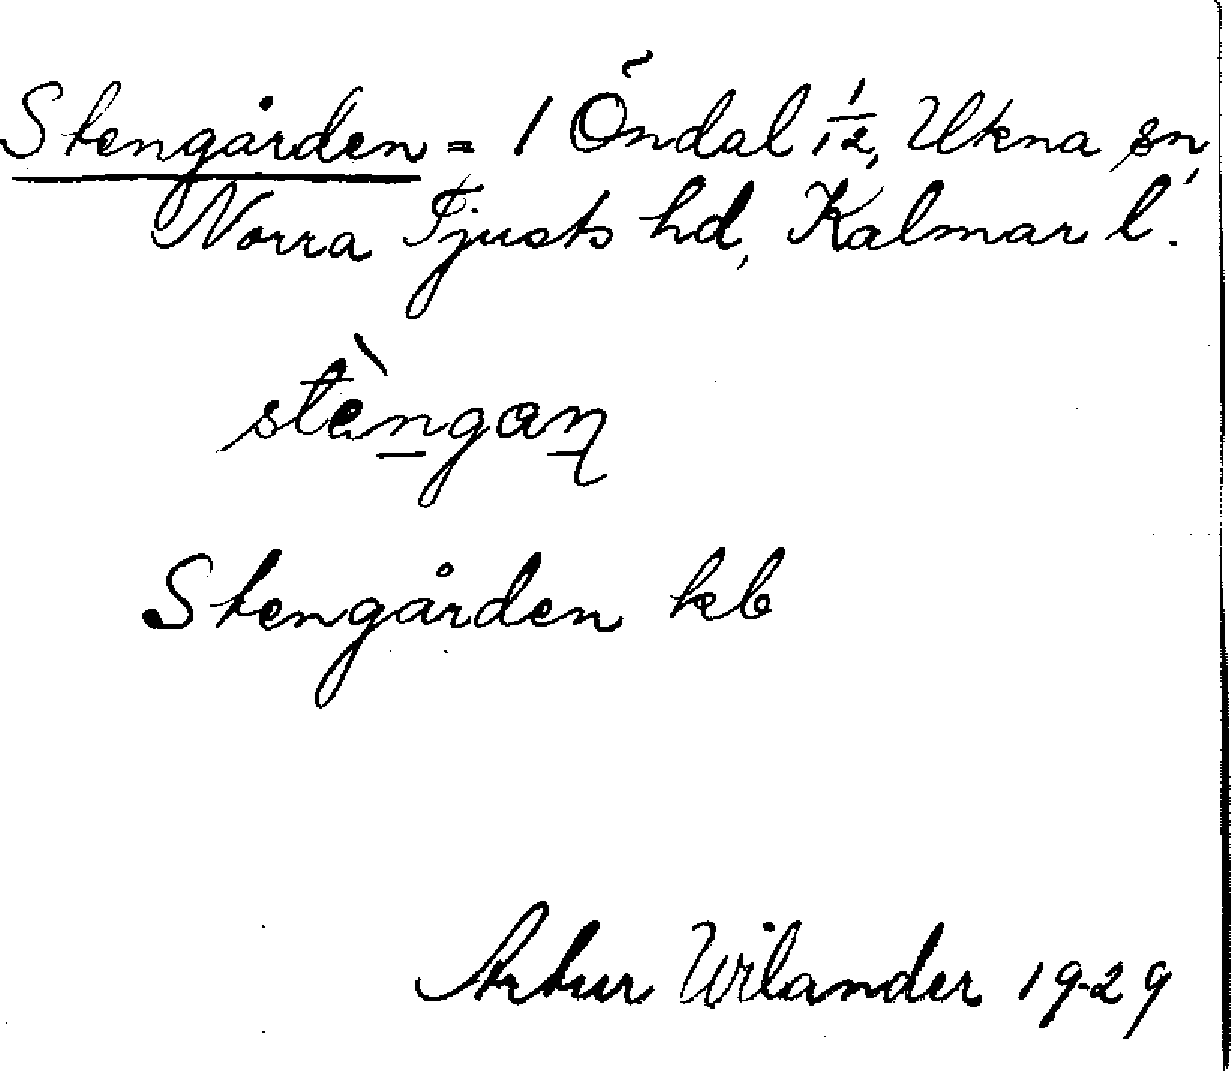 Stengården = 1 Öndal 1/12, Ukna sn,
Norra Tjusts hd, Kalmar l.
stèngaɳ
Stengården kb
Artur Wilander 1929